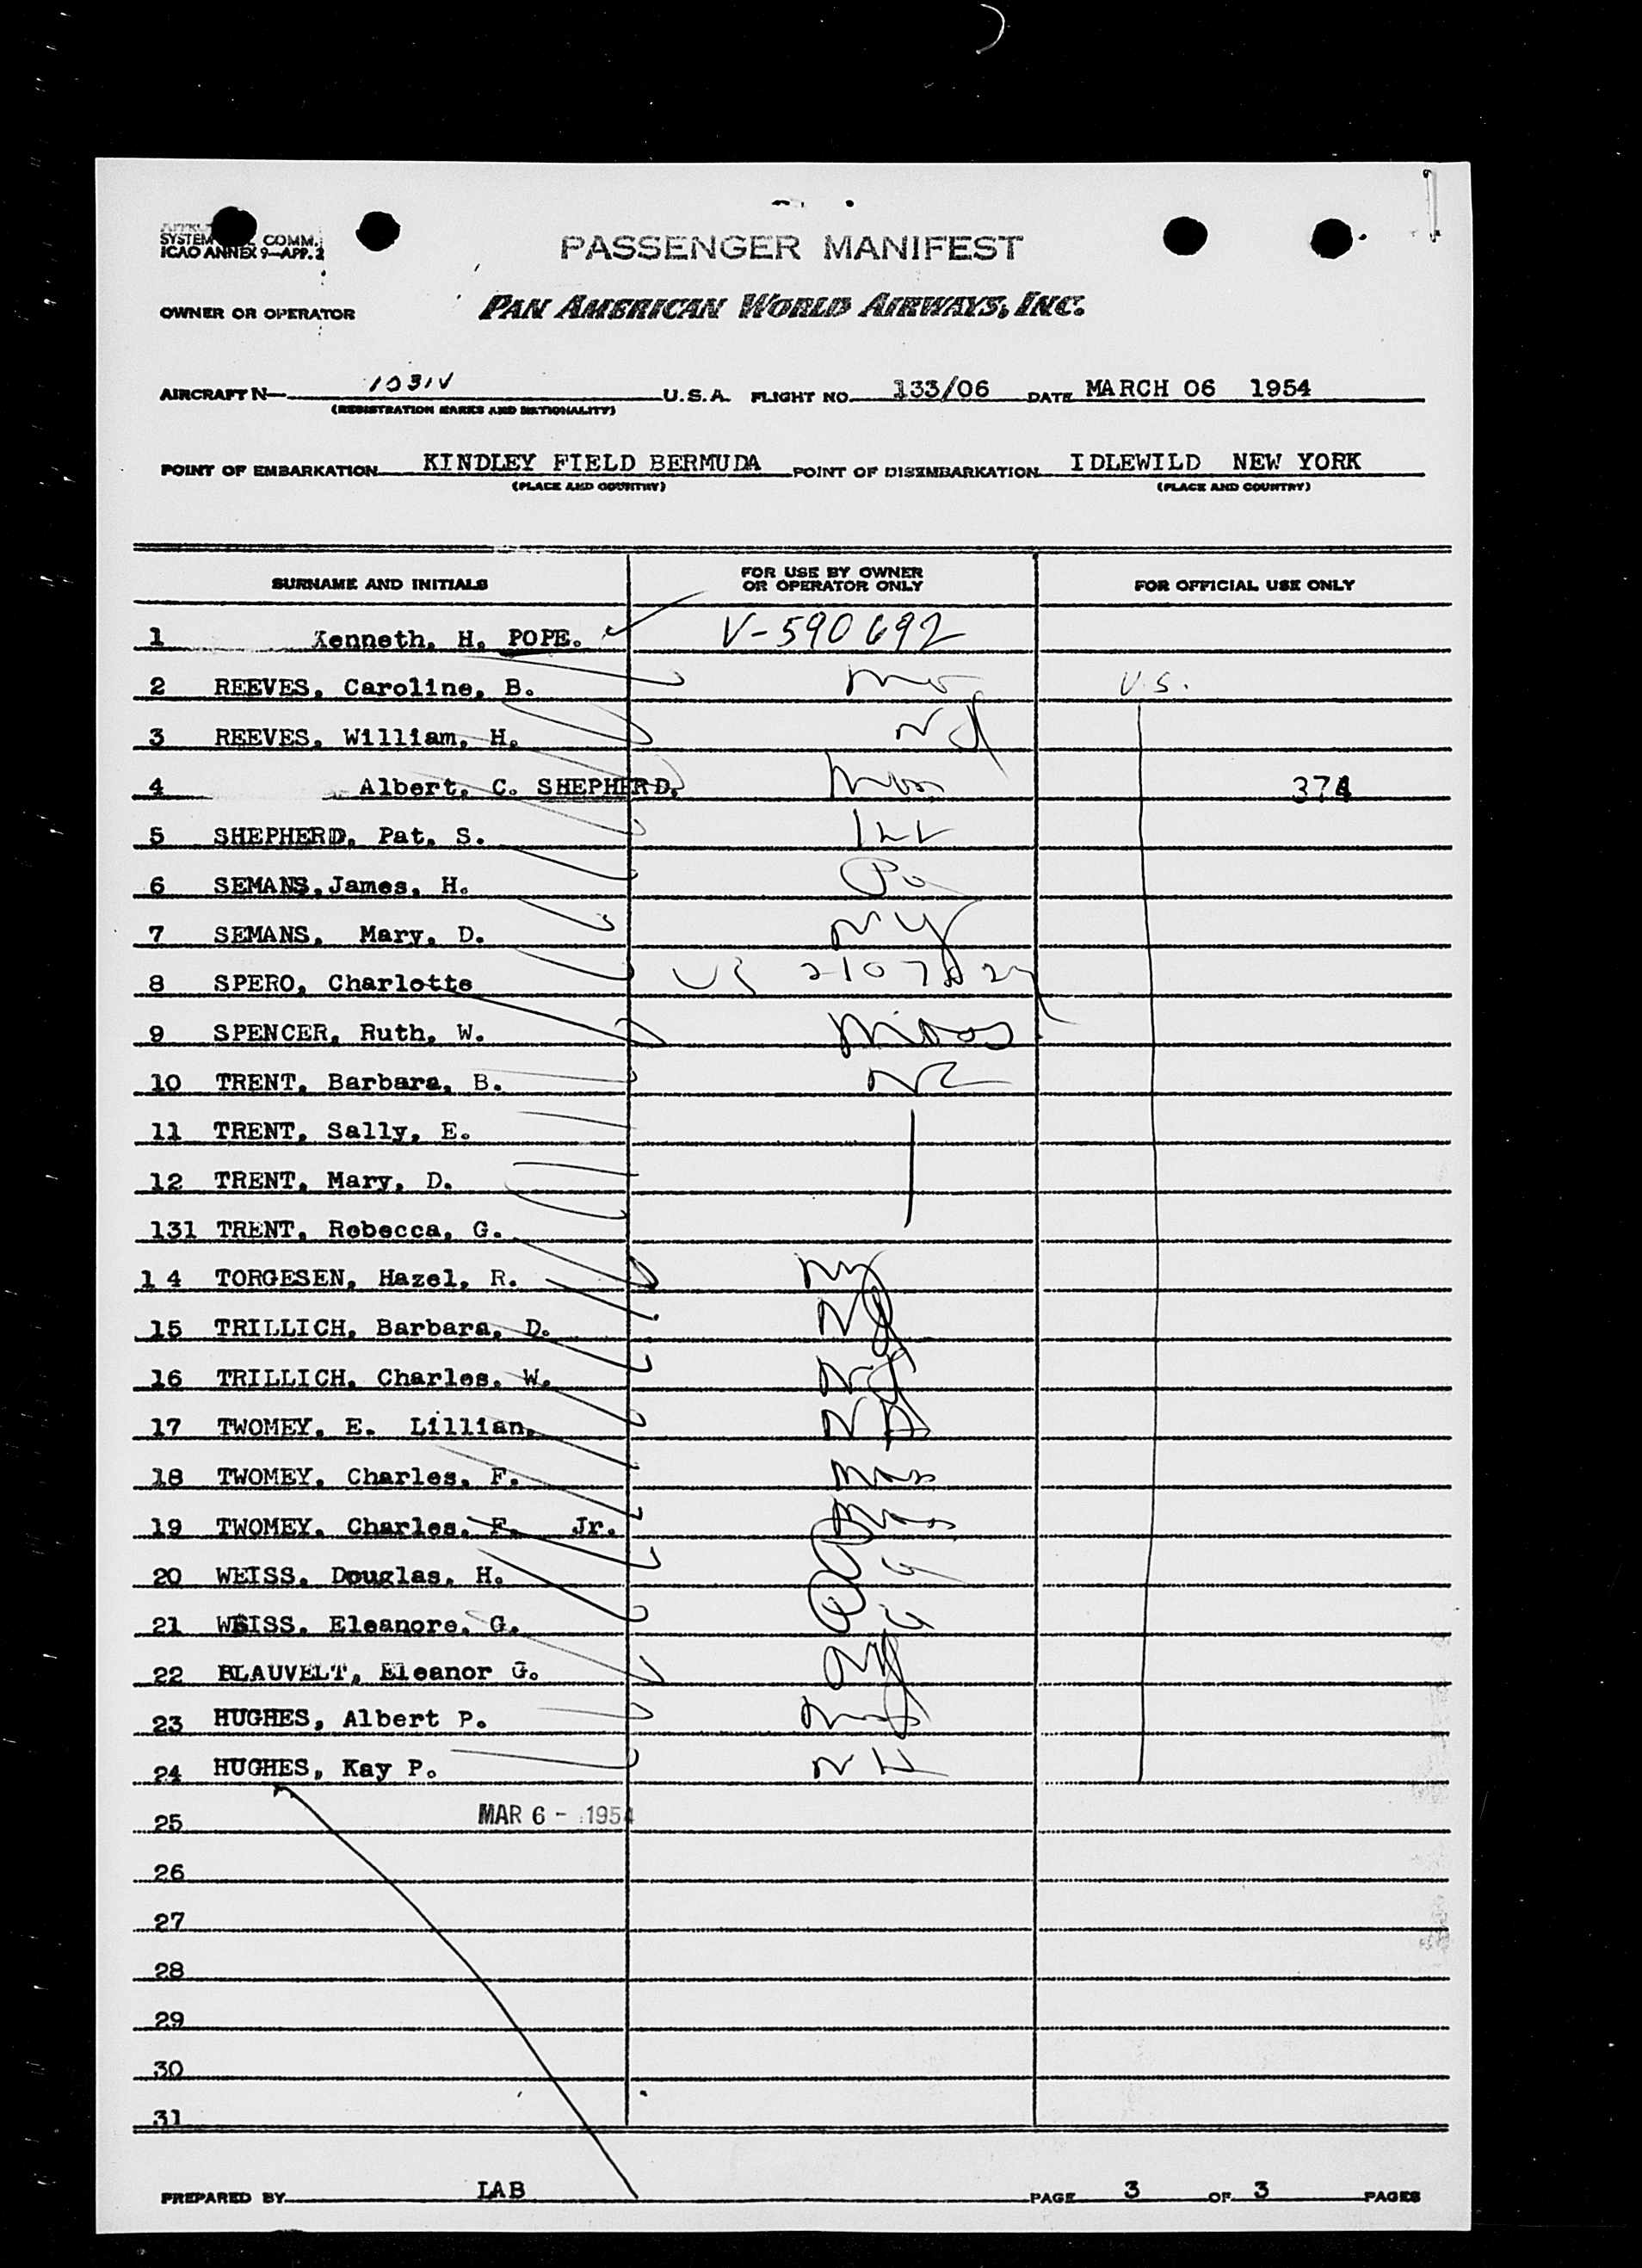 SYSTEM COMM.
ICAO ANNEX 9—APP. 2
PASSENGER MANIFEST
OWNER OR OPERATOR PAN AMERICAN WORLD AIRWAYS, INC.
AIRCRAFT N— 1031V U.S.A. FLIGHT NO. 133/06 DATE MARCH 06 1954
(REGISTRATION MARKS AND NATIONALITY)
POINT OF EMBARKATION KINDLEY FIELD BERMUDA POINT OF DISEMBARKATION IDLEWILD NEW YORK
(PLACE AND COUNTRY) (PLACE AND COUNTRY)
SURNAME AND INITIALS FOR USE BY OWNER OR OPERATOR ONLY FOR OFFICIAL USE ONLY
1 Kenneth, H. POPE. V-590692
2 REEVES, Caroline, B. Mo U.S.
3 REEVES, William, H.
4 Albert, C. SHEPHERD, 374
5 SHEPHERD, Pat, S.
6 SEMANS, James, H. Pa
7 SEMANS, Mary, D. NY
8 SPERO, Charlotte
9 SPENCER, Ruth, W.
10 TRENT, Barbara, B.
11 TRENT, Sally, E.
12 TRENT, Mary, D.
131 TRENT, Rebecca, G.
14 TORGESEN, Hazel, R. NY
15 TRILLICH, Barbara, D. NY
16 TRILLICH, Charles, W. NY
17 TWOMEY, E. Lillian,
18 TWOMEY, Charles, F. Mass
19 TWOMEY, Charles, F. Jr. Mass
20 WEISS, Douglas, H.
21 WEISS, Eleanore, G.
22 BLAUVELT, Eleanor G. NY
23 HUGHES, Albert P. NY
24 HUGHES, Kay P. NH
25 MAR 6 - 1954
26
27
28
29
30
31
PREPARED BY LAB PAGE 3 OF 3 PAGES